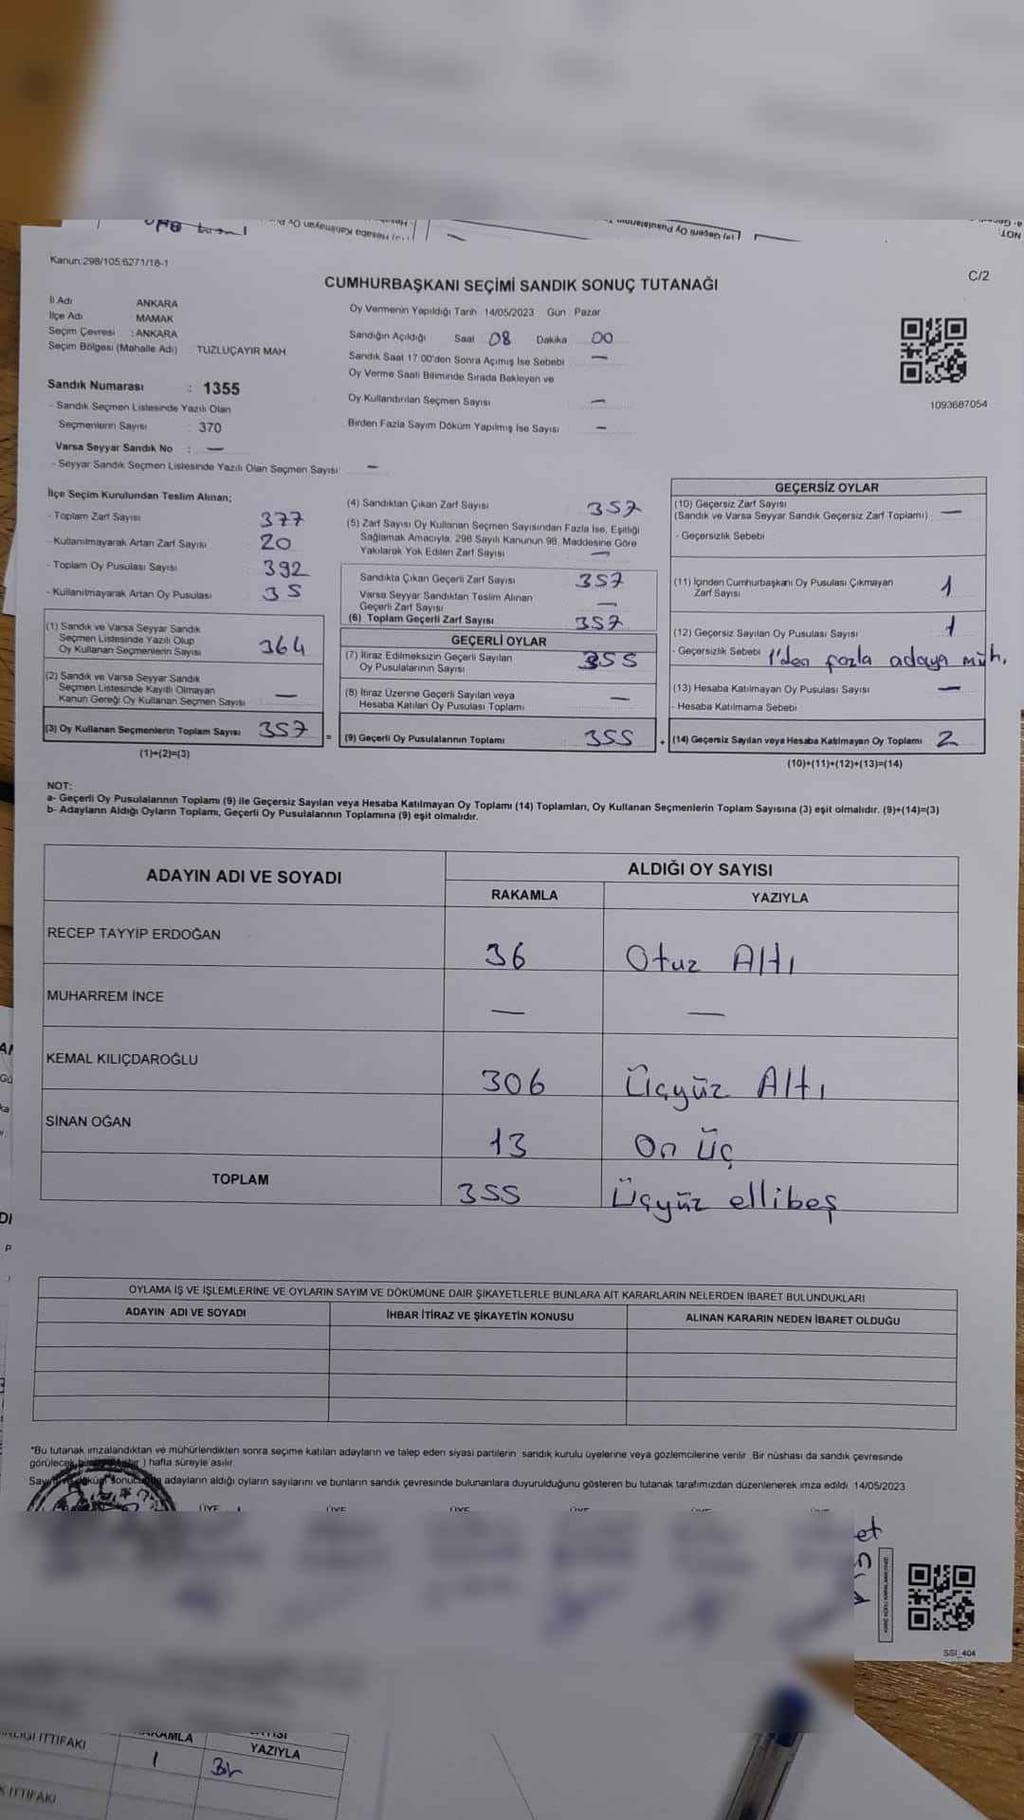 Kanun:298/105;6271/18-1
C/2
CUMHURBAŞKANI SEÇİMİ SANDIK SONUÇ TUTANAĞI
İl Adı ANKARA
İlçe Adı MAMAK
Seçim Çevresi : ANKARA
Seçim Bölgesi (Mahalle Adı) TUZLUÇAYIR MAH
Sandık Numarası : 1355
- Sandık Seçmen Listesinde Yazılı Olan
Seçmenlerin Sayısı : 370
Varsa Seyyar Sandık No : —
- Seyyar Sandık Seçmen Listesinde Yazılı Olan Seçmen Sayısı —
Oy Vermenin Yapıldığı Tarih 14/05/2023 Gün Pazar
Sandığın Açıldığı Saat 08 Dakika 00
Sandık Saat 17:00'den Sonra Açımış İse Sebebi —
Oy Verme Saati Bitiminde Sırada Bekleyen ve
Oy Kullandırılan Seçmen Sayısı —
Birden Fazla Sayım Döküm Yapılmış İse Sayısı —
1093687054
İlçe Seçim Kurulundan Teslim Alınan;
- Toplam Zarf Sayısı 377
- Kullanılmayarak Artan Zarf Sayısı 20
- Toplam Oy Pusulası Sayısı 392
- Kullanılmayarak Artan Oy Pusulası 35
(1) Sandık ve Varsa Seyyar Sandık
Seçmen Listesinde Yazılı Olup
Oy Kullanan Seçmenlerin Sayısı 364
(2) Sandık ve Varsa Seyyar Sandık
Seçmen Listesinde Kayıtlı Olmayan
Kanun Gereği Oy Kullanan Seçmen Sayısı —
(3) Oy Kullanan Seçmenlerin Toplam Sayısı 357
(1)+(2)=(3)
(4) Sandıktan Çıkan Zarf Sayısı 357
(5) Zarf Sayısı Oy Kullanan Seçmen Sayısından Fazla İse, Eşitliği
Sağlamak Amacıyla, 298 Sayılı Kanunun 98. Maddesine Göre
Yakılarak Yok Edilen Zarf Sayısı —
Sandıkta Çıkan Geçerli Zarf Sayısı 357
Varsa Seyyar Sandıktan Teslim Alınan
Geçerli Zarf Sayısı —
(6) Toplam Geçerli Zarf Sayısı 357
GEÇERLİ OYLAR
(7) İtiraz Edilmeksizin Geçerli Sayılan
Oy Pusulalarının Sayısı 355
(8) İtiraz Üzerine Geçerli Sayılan veya
Hesaba Katılan Oy Pusulası Toplamı —
= (9) Geçerli Oy Pusulalarının Toplamı 355
GEÇERSİZ OYLAR
(10) Geçersiz Zarf Sayısı
(Sandık ve Varsa Seyyar Sandık Geçersiz Zarf Toplamı) —
- Geçersizlik Sebebi
(11) İçinden Cumhurbaşkanı Oy Pusulası Çıkmayan
Zarf Sayısı 1
(12) Geçersiz Sayılan Oy Pusulası Sayısı 1
- Geçersizlik Sebebi 1'den fazla adaya müh.
(13) Hesaba Katılmayan Oy Pusulası Sayısı —
- Hesaba Katılmama Sebebi
+ (14) Geçersiz Sayılan veya Hesaba Katılmayan Oy Toplamı 2
(10)+(11)+(12)+(13)=(14)
NOT:
a- Geçerli Oy Pusulalarının Toplamı (9) ile Geçersiz Sayılan veya Hesaba Katılmayan Oy Toplamı (14) Toplamları, Oy Kullanan Seçmenlerin Toplam Sayısına (3) eşit olmalıdır. (9)+(14)=(3)
b- Adayların Aldığı Oyların Toplamı, Geçerli Oy Pusulalarının Toplamına (9) eşit olmalıdır.
ADAYIN ADI VE SOYADI ALDIĞI OY SAYISI
RAKAMLA YAZIYLA
RECEP TAYYİP ERDOĞAN 36 Otuz Altı
MUHARREM İNCE — —
KEMAL KILIÇDAROĞLU 306 Üçyüz Altı
SİNAN OĞAN 13 On üç
TOPLAM 355 Üçyüz ellibeş
OYLAMA İŞ VE İŞLEMLERİNE VE OYLARIN SAYIM VE DÖKÜMÜNE DAİR ŞİKAYETLERLE BUNLARA AİT KARARLARIN NELERDEN İBARET BULUNDUKLARI
ADAYIN ADI VE SOYADI İHBAR İTİRAZ VE ŞİKAYETİN KONUSU ALINAN KARARIN NEDEN İBARET OLDUĞU
*Bu tutanak imzalandıktan ve mühürlendikten sonra seçime katılan adayların ve talep eden siyasi partilerin sandık kurulu üyelerine veya gözlemcilerine verilir. Bir nüshası da sandık çevresinde
görülecek ) hafta süreyle asılır.
adayların aldığı oyların sayılarını ve bunların sandık çevresinde bulunanlara duyurulduğunu gösteren bu tutanak tarafımızdan düzenlenerek imza edildi. 14/05/2023
et
SSI_404
İTTİFAKI RAKAMLA YAZIYLA
1 Bir
İTTİFAKI